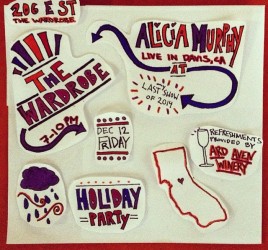 206 E ST
THE WARDROBE
ALICIA MURPHY
LIVE IN DAVIS, CA
AT
THE
WARDROBE
LAST SHOW
OF 2014
7-10PM
DEC 12
FRIDAY
REFRESHMENTS
PROVIDED BY
WINERY
HOLIDAY
PARTY